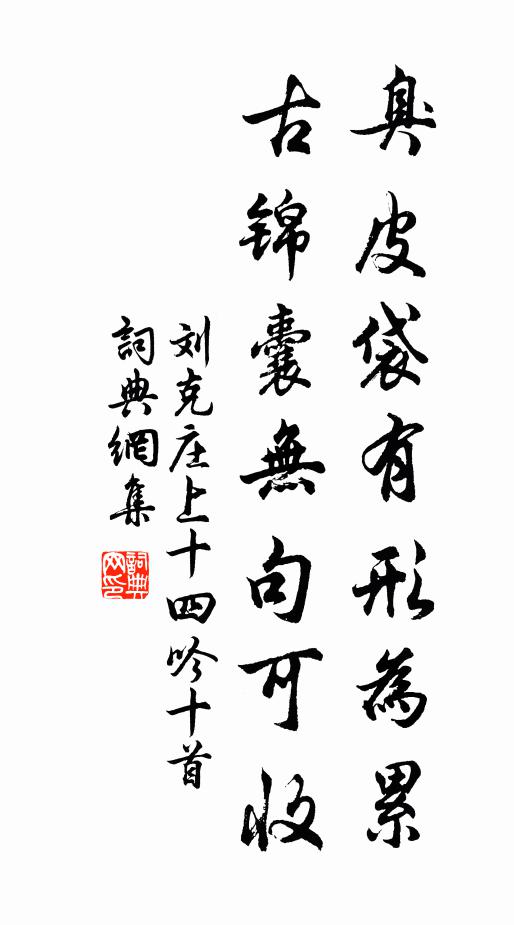 臭皮袋有形為累
古錦囊無句可收
刘克庄上十四吟十首
詞典網集
詞典
网印